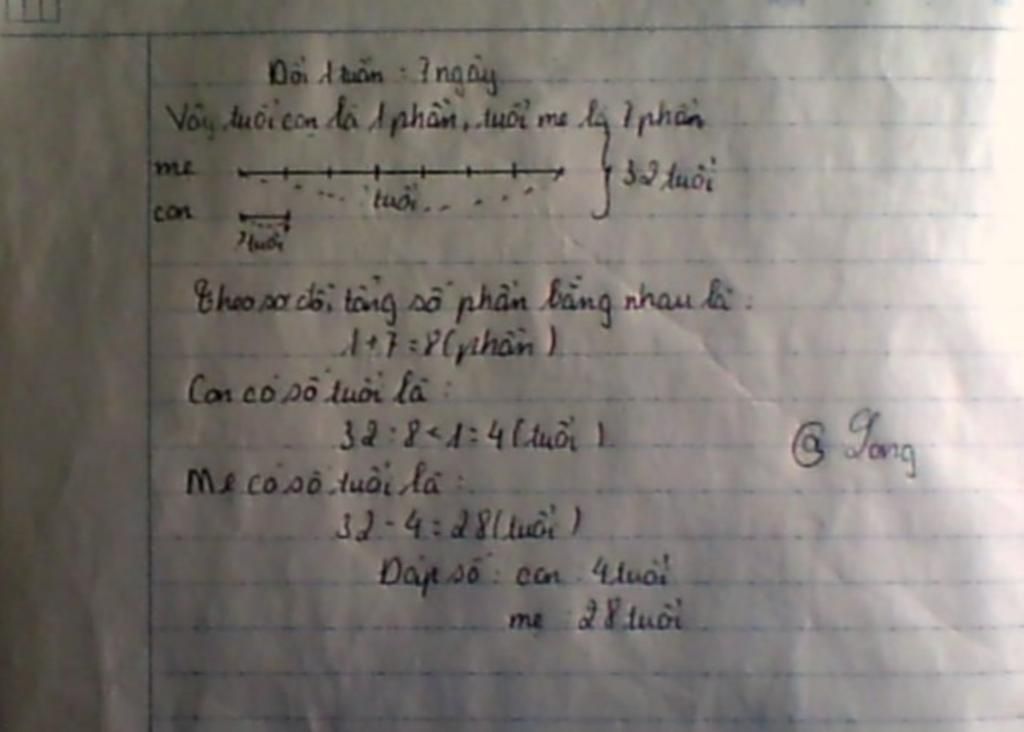 Đổi 1 tuần = 7 ngày
Vậy tuổi con là 1 phần, tuổi mẹ là 7 phần
mẹ
? tuổi
32 tuổi
con
? tuổi
Theo sơ đồ, tổng số phần bằng nhau là :
1 + 7 = 8 (phần)
Con có số tuổi là :
32 : 8 × 1 = 4 (tuổi)
Mẹ có số tuổi là :
32 - 4 = 28 (tuổi)
Đáp số : con 4 tuổi
mẹ : 28 tuổi